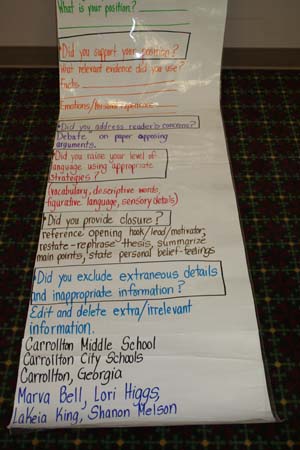 What is your position?
*Did you support your position?
What relevant evidence did you use?
Facts
Emotions/Personal experience
*Did you address reader's concerns?
Debate on paper opposing
arguments.
*Did you raise your level of
language using appropriate
strategies?
(vocabulary, descriptive words,
figurative language, sensory details)
*Did you provide closure?
reference opening hook/lead/motivator,
restate-rephrase thesis, summarize
main points, state personal belief-feelings
*Did you exclude extraneous details
and inappropriate information?
Edit and delete extra/irrelevant
information.
Carrollton Middle School
Carrollton City Schools
Carrollton, Georgia
Marva Bell, Lori Higgs,
Lakeia King, Shanon Melson